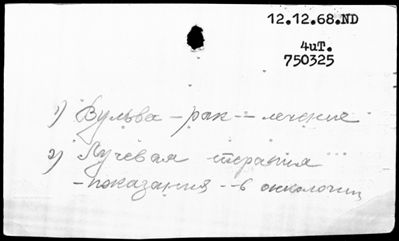 12.12.68.ND
4иТ.
750325
1) Вульва – рак – лечение
2) Лучевая терапия
– показания – в онкологии